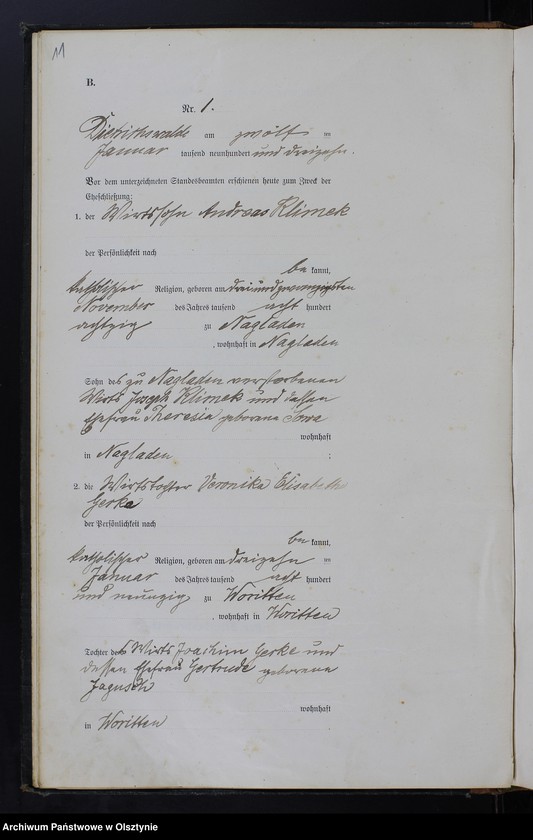 11
B.
Nr. 1.
Dietrichswalde am zwölf ten
Januar tausend neunhundert und dreizehn.
Vor dem unterzeichneten Standesbeamten erschienen heute zum Zweck der
Eheschließung:
1. der Wirtssohn Andreas Klimek
der Persönlichkeit nach
be kannt,
katholischer Religion, geboren am dreiundzwanzigsten
November des Jahres tausend acht hundert
achtzig zu Nagladen
, wohnhaft in Nagladen
Sohn des zu Nagladen verstorbenen
Wirts Joseph Klimek und dessen
Ehefrau Theresia geborene Sowa
wohnhaft
in Nagladen ;
2. die Wirtstochter Veronika Elisabeth
Gerke
der Persönlichkeit nach
be kannt,
katholischer Religion, geboren am dreizehn ten
Januar des Jahres tausend acht hundert
und neunzig zu Woritten
, wohnhaft in Woritten
Tochter des Wirts Joachim Gerke und
dessen Ehefrau Gertrude geborene
Jagusch
wohnhaft
in Woritten
Archiwum Państwowe w Olsztynie